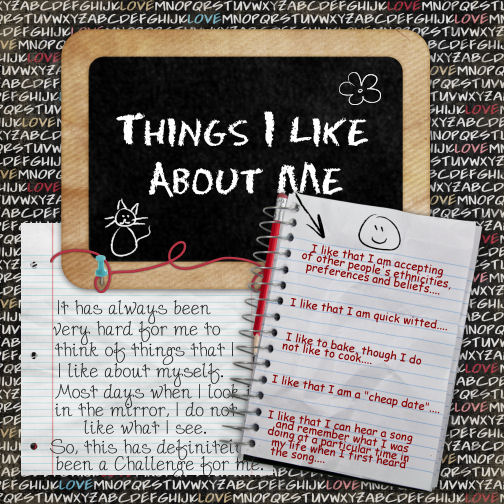 THINGS I LIKE
ABOUT ME
It has always been
very hard for me to
think of things that I
I like about myself.
Most days when I look
in the mirror, I do not
like what I see.
So, this has definitely
been a Challenge for me.
I like that I am accepting
of other people's ethnicities,
preferences and beliefs....
I like that I am quick witted....
I like to bake, though I do
not like to cook....
I like that I am a "cheap date"....
I like that I can hear a song
and remember what I was
doing at a particular time in
my life when I first heard
the song....